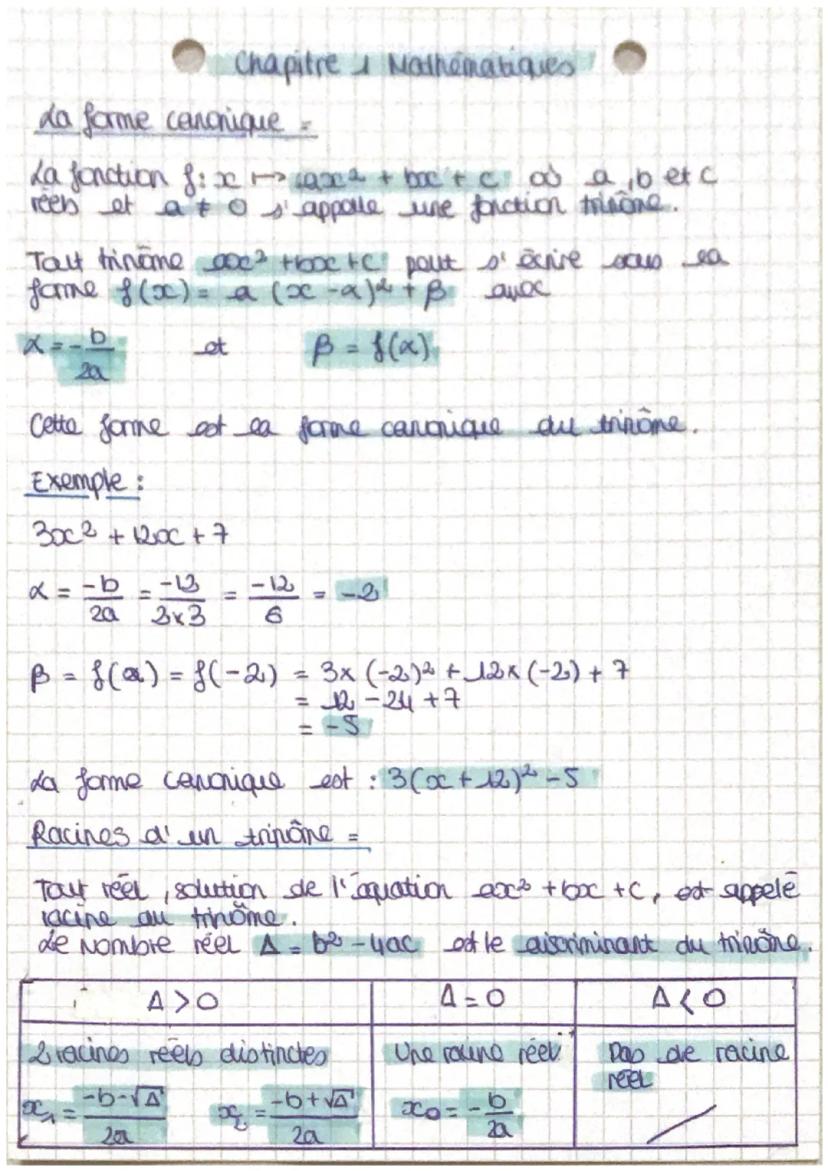 Chapitre 1 Mathématiques
La forme canonique =
La fonction f: x ↦ ax² + bx + c où a, b et c
réels et a ≠ 0 s'appelle une fonction trinôme.
Tout trinôme ax² + bx + c peut s'écrire sous la
forme f(x) = a (x - α)² + β avec
α = - b/2a et β = f(α)
Cette forme est la forme canonique du trinôme.
Exemple :
3x² + 12x + 7
α = -b/2a = -12/2×3 = -12/6 = -2
β = f(α) = f(-2) = 3× (-2)² + 12× (-2) + 7
= 12 - 24 + 7
= -5
La forme canonique est : 3(x + 12)² - 5
Racines d'un trinôme =
Tout réel, solution de l'équation ax² + bx + c, est appelé
racine du trinôme.
Le nombre réel Δ = b² - 4ac est le discriminant du trinôme.
Δ > 0 Δ = 0 Δ < 0
2 racines réels distinctes Une racine réel Pas de racine
réel
x₁ = -b-√Δ/2a x₂ = -b+√Δ/2a x₀ = - b/2a